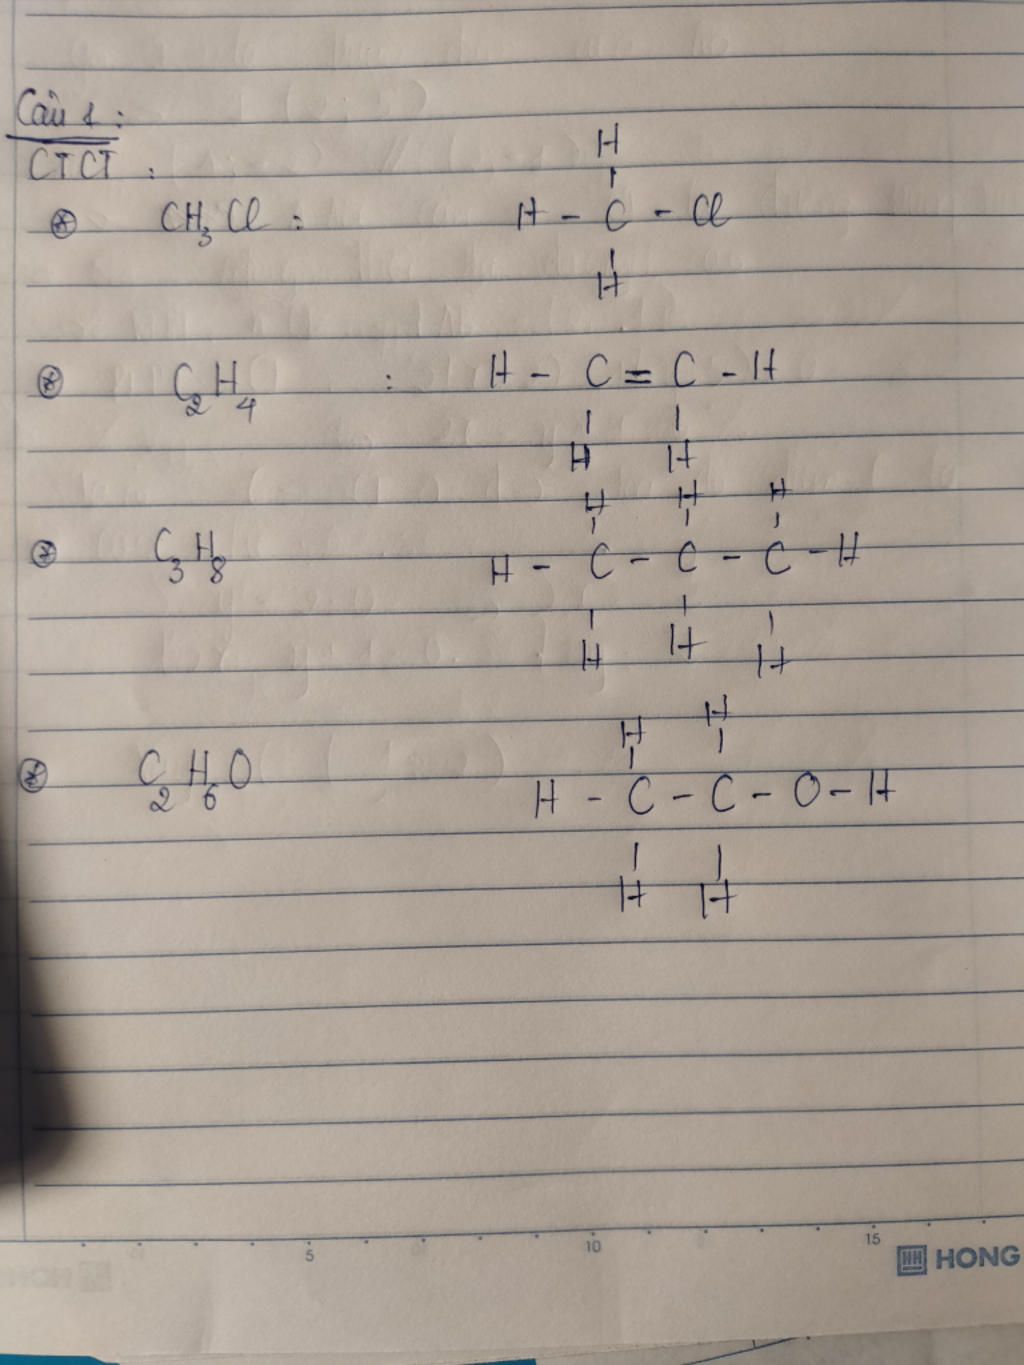 Câu 1 :
CTCT :
H
⊛ CH₃Cl : H - C - Cl
H
⊛ C₂H₄ : H - C = C - H
H H
H H H
⊛ C₃H₈ H - C - C - C - H
H H H
H H
⊛ C₂H₆O H - C - C - O - H
H H
5 10 15
HONG